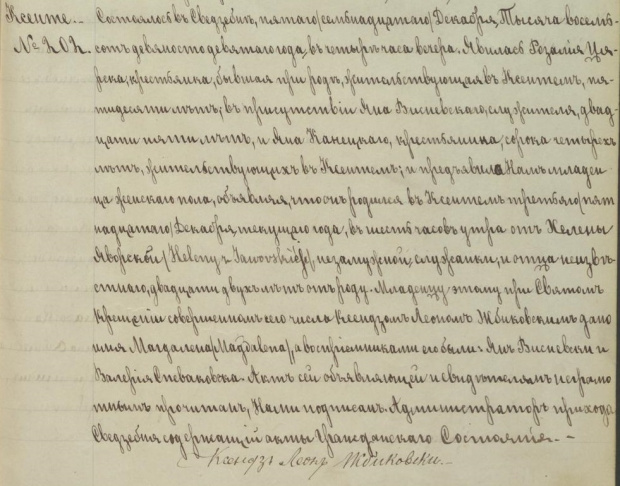 Ксенте
№ 202.
Состоялось въ Сведзебни, пятаго /семнадцатаго/ Декабря, Тысяча восемь-
сотъ девяносто девятаго года, въ четыре часа вечера. Явилась Розалія
крестьянка, бывшая при родѣ, жительствующая въ Ксентемъ, пя-
тидесяти лѣтъ; въ присутствіи Яна Висневскаго, служителя, двад-
цати пяти лѣтъ, и Яна Канецкаго, крестьянина, сорока четырехъ
лѣтъ, жительствующихъ въ Ксентемъ; и предъявила Намъ младен-
ца женскаго пола, объявляя, что онъ родился въ Ксентемъ третьяго /пят-
надцатаго/ Декабря текущаго года, въ шесть часовъ утра отъ Хелены
Яворской /Heleny z Jaworskich/, незамужной, служанки, и отца неизвѣ-
стнаго, двадцати двухъ лѣтъ отъ роду. Младенцу этому при Святомъ
Крещеніи совершенномъ сего числа Ксендзомъ Леономъ Жбиковскимъ дано
имя Магдалена /Magdalena/, а воспріемниками его были Янъ Висневски и
Валерія Спеваковска. Актъ сей объявляющей и свидѣтелямъ неграмо-
тнымъ прочитанъ, Нами подписанъ. Администраторъ прихода
Сведзебня содержащій акты Гражданскаго Состоянія.
Ксендзъ Леонъ Жбиковски.